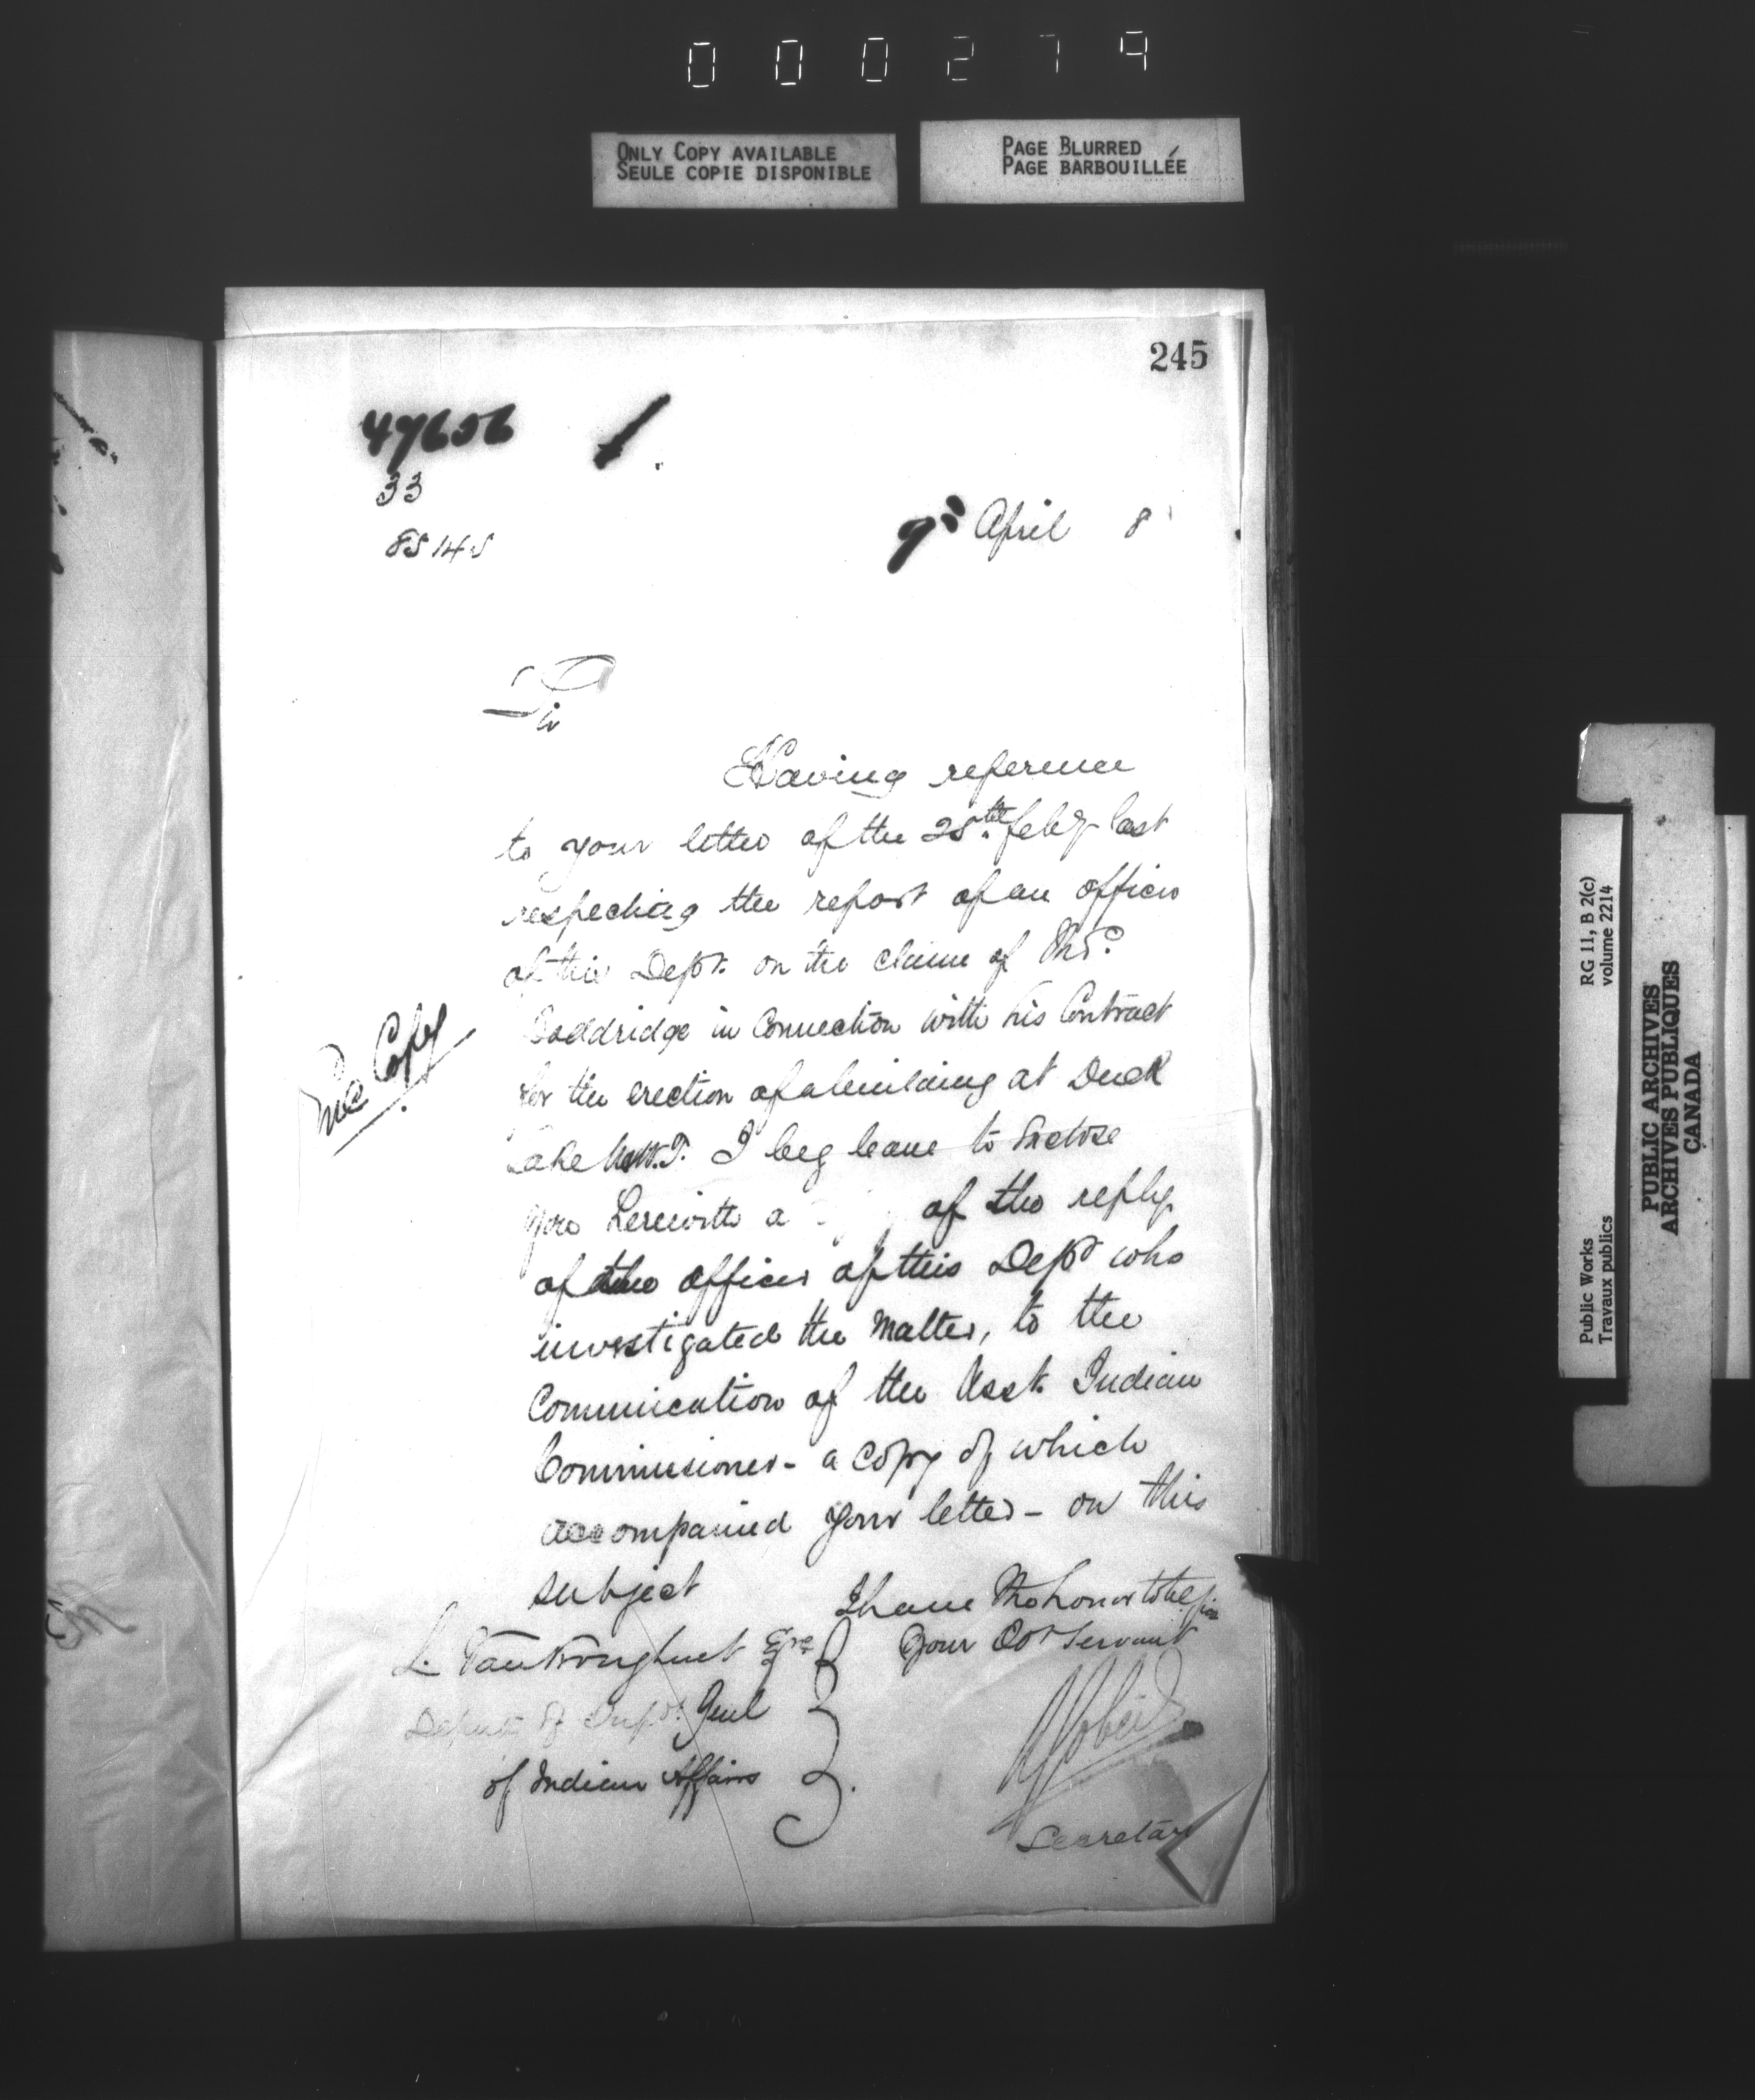 000279
ONLY COPY AVAILABLE
SEULE COPIE DISPONIBLE
PAGE BLURRED
PAGE BARBOUILLÉE
245
33
April 8
Sir
Having reference
to your letter of the 28th feby last
respecting the report of an officer
of this Dept. on the claim of
in Connection with his Contract
for the erection of a building at Duck
Lake N.W.T. I beg leave to Enclose
you herewith a of the reply
of the officer of this Dept who
investigated the Matter, to the
Communication of the Asst. Indian
Commissioner - a copy of which
accompanied your letter - on this
subject
I have the honor to be Sir
Your Obt Servant
L. Vankoughnet Esqre
Deputy Supt. Genl
of Indian Affairs
Secretary
Copy
RG 11, B 2(c)
volume 2214
Public Works
Travaux publics
PUBLIC ARCHIVES
ARCHIVES PUBLIQUES
CANADA